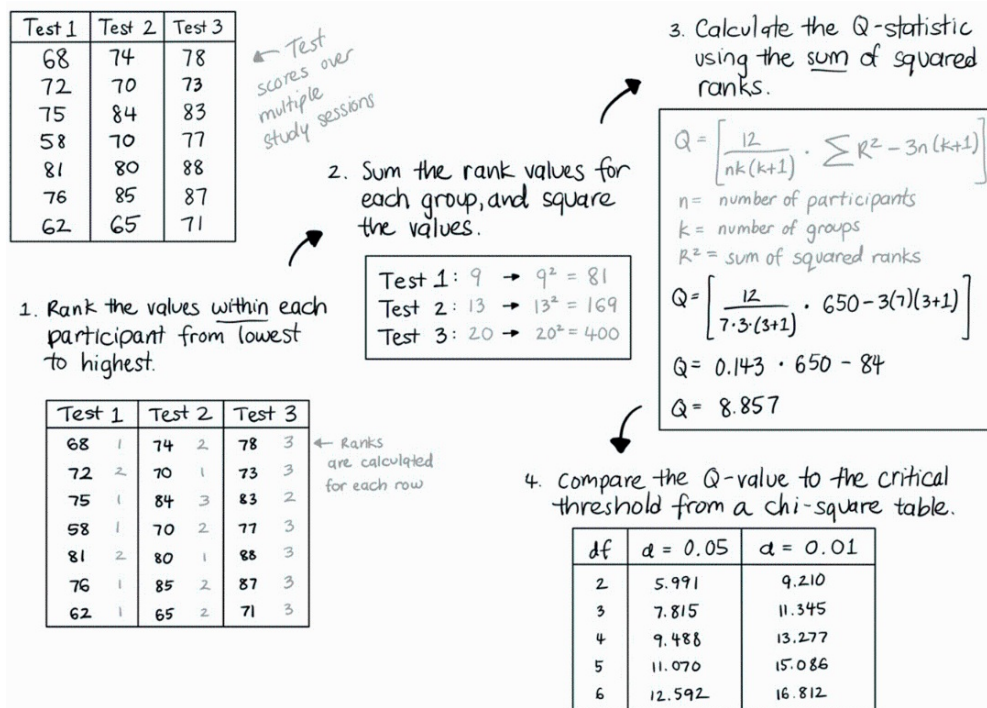 Test 1 Test 2 Test 3
68 74 78
72 70 73
75 84 83
58 70 77
81 80 88
76 85 87
62 65 71
← Test
scores over
multiple
study sessions
1. Rank the values within each
participant from lowest
to highest.
Test 1 Test 2 Test 3
68 1 74 2 78 3
72 2 70 1 73 3
75 1 84 3 83 2
58 1 70 2 77 3
81 2 80 1 88 3
76 1 85 2 87 3
62 1 65 2 71 3
← Ranks
are calculated
for each row
2. Sum the rank values for
each group, and square
the values.
Test 1: 9 → 9² = 81
Test 2: 13 → 13² = 169
Test 3: 20 → 20² = 400
3. Calculate the Q-statistic
using the sum of squared
ranks.
Q = [12/nk(k+1) · ∑R² - 3n(k+1)]
n = number of participants
k = number of groups
R² = sum of squared ranks
Q = [12/7·3·(3+1) · 650 - 3(7)(3+1)]
Q = 0.143 · 650 - 84
Q = 8.857
4. Compare the Q-value to the critical
threshold from a chi-square table.
df α = 0.05 α = 0.01
2 5.991 9.210
3 7.815 11.345
4 9.488 13.277
5 11.070 15.086
6 12.592 16.812